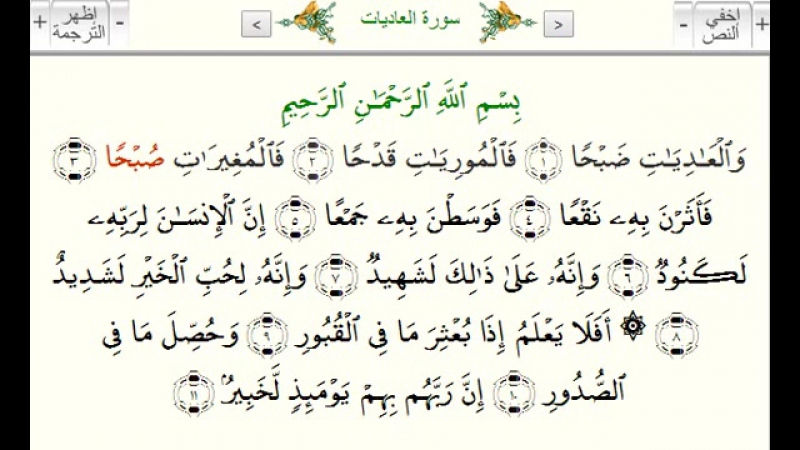 + إخفي النص -
< سورة العاديات >
+ إظهر الترجمة -
بِسْمِ ٱللَّهِ ٱلرَّحْمَـٰنِ ٱلرَّحِيمِ
وَٱلْعَـٰدِيَـٰتِ ضَبْحًا ١ فَٱلْمُورِيَـٰتِ قَدْحًا ٢ فَٱلْمُغِيرَٰتِ صُبْحًا ٣
فَأَثَرْنَ بِهِۦ نَقْعًا ٤ فَوَسَطْنَ بِهِۦ جَمْعًا ٥ إِنَّ ٱلْإِنسَـٰنَ لِرَبِّهِۦ
لَكَنُودٌ ٦ وَإِنَّهُۥ عَلَىٰ ذَٰلِكَ لَشَهِيدٌ ٧ وَإِنَّهُۥ لِحُبِّ ٱلْخَيْرِ لَشَدِيدٌ
٨ ۞ أَفَلَا يَعْلَمُ إِذَا بُعْثِرَ مَا فِى ٱلْقُبُورِ ٩ وَحُصِّلَ مَا فِى
ٱلصُّدُورِ ١٠ إِنَّ رَبَّهُم بِهِمْ يَوْمَئِذٍ لَّخَبِيرٌۢ ١١